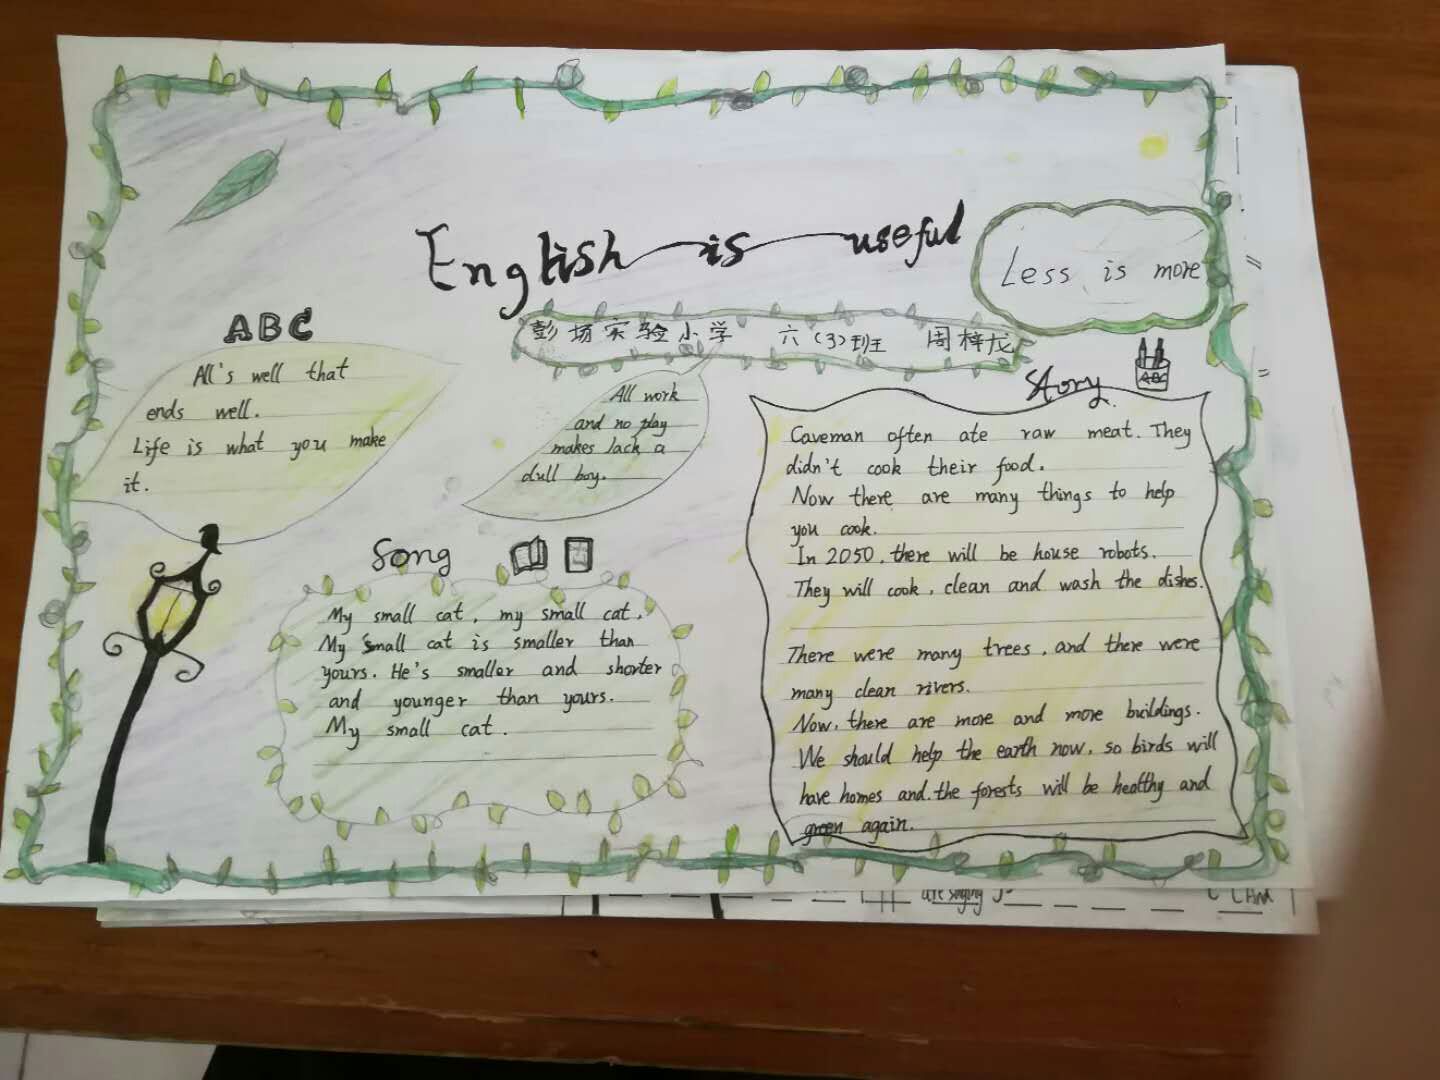 English is useful
Less is more
彭场实验小学 六(3)班 周梓龙
ABC
All's well that
ends well.
Life is what you make
it.
All work
and no play
makes lack a
dull boy.
Song
My small cat, my small cat.
My small cat is smaller than
yours. He's smaller and shorter
and younger than yours.
My small cat.
Story
ABC
Caveman often ate raw meat. They
didn't cook their food.
Now there are many things to help
you cook.
In 2050, there will be house robots.
They will cook, clean and wash the dishes.
There were many trees, and there were
many clean rivers.
Now, there are more and more buildings.
We should help the earth now, so birds will
have homes and the forests will be healthy and
green again.
are singing